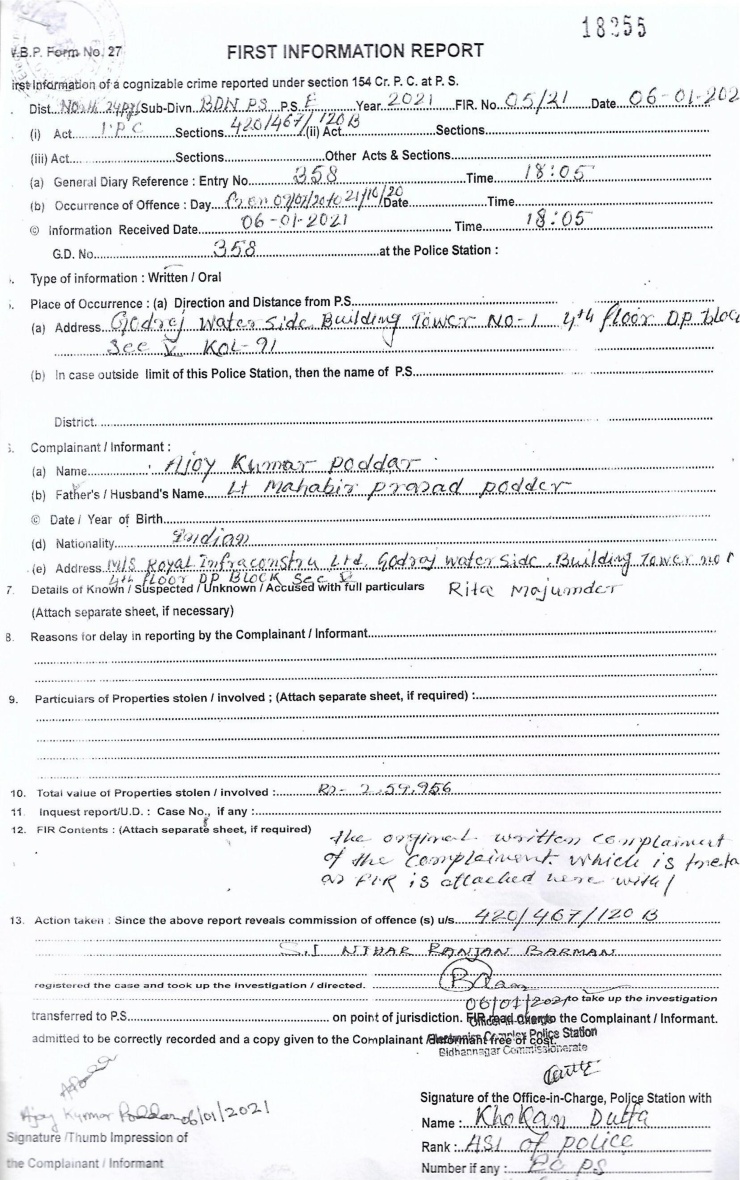 18255
W.B.P. Form No. 27
FIRST INFORMATION REPORT
irst Information of a cognizable crime reported under section 154 Cr. P. C. at P. S.
Dist. North 24pgs Sub-Divn. BDN PS P.S. E Year 2021 FIR. No. 05/21 Date 06-01-202
(i) Act I.P.C Sections 420/467/120B (ii) Act Sections
(iii) Act Sections Other Acts & Sections
(a) General Diary Reference : Entry No. 358 Time 18:05
(b) Occurrence of Offence : Day 21/10/20 Date Time
© Information Received Date 06-01-2021 Time 18:05
G.D. No. 358 at the Police Station :
Type of information : Written / Oral
Place of Occurrence : (a) Direction and Distance from P.S.
(a) Address Godrej Water Side, Building Tower No-1 4th floor DP Bloc
Sec V KOL-91
(b) In case outside limit of this Police Station, then the name of P.S.
District.
Complainant / Informant :
(a) Name Ajoy Kumar Poddar
(b) Father's / Husband's Name Lt Mahabir Prasad podder
© Date / Year of Birth
(d) Nationality Indian
(e) Address M/S Royal Infraconstru Ltd. Godrej water side. Building Tower no 1
4th floor DP Block Sec V
7. Details of Known / Suspected / Unknown / Accused with full particulars Rita Majumder
(Attach separate sheet, if necessary)
8. Reasons for delay in reporting by the Complainant / Informant
9. Particulars of Properties stolen / involved ; (Attach separate sheet, if required) :
10. Total value of Properties stolen / involved : Rs- 2,59,956
11. Inquest report/U.D. : Case No., if any :
12. FIR Contents : (Attach separate sheet, if required) the orginal written complainent
of the complainent. which is treta
as FIR is attached here with/
13. Action taken : Since the above report reveals commission of offence (s) u/s 420/467/120 B
S.I NIHAR RANJAN BARMAN
registered the case and took up the investigation / directed.
06/01/2021 to take up the investigation
transferred to P.S. on point of jurisdiction. FIR read over to the Complainant / Informant.
Officer-in-Charge
admitted to be correctly recorded and a copy given to the Complainant / Informant free of cost.
Electronics Complex Police Station
Bidhannagar Commissionerate
Signature of the Office-in-Charge, Police Station with
Ajay Kumar Poddar 06/01/2021
Name : Khokan Dutta
Signature /Thumb Impression of
Rank : ASI of police
the Complainant / Informant
Number if any : EC PS